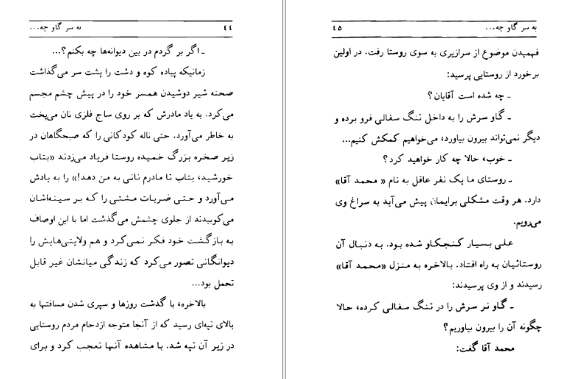 به سر گاو چه... ۴۴
ـ اگر برگردم در بین دیوانه‌ها چه بکنم؟...
زمانیکه پیاده کوه و دشت را پشت سر می‌گذاشت
صحنه شیر دوشیدن همسر خود را در پیش چشم مجسم
می‌کرد. به یاد مادرش که بر روی ساج فلزی نان می‌پخت
به خاطر می‌آورد. حتی ناله کودکانی را که صبحگاهان در
زیر صخره بزرگ خمیده روستا فریاد می‌زدند «بتاب
خورشید، بتاب تا مادرم نانی به من دهد!» را به یادش
می‌آورد و حتی ضربات مشتی را که بر سینه‌اشان
می‌کوبیدند از جلوی چشمش می‌گذشت اما با این اوصاف
به بازگشت خود فکر نمی‌کرد و هم ولایتی‌هایش را
دیوانگانی تصور می‌کرد که زندگی میانشان غیر قابل
تحمل بود...
بالاخره، با گذشت روزها و سپری شدن مسافتها به
بالای تپه‌ای رسید که از آنجا متوجه ازدحام مردم روستایی
در زیر آن تپه شد. با مشاهده آنها تعجب کرد و برای
به سر گاو چه... ۴۵
فهمیدن موضوع از سرازیری به سوی روستا رفت. در اولین
برخورد از روستایی پرسید:
ـ چه شده است آقایان؟
ـ گاو سرش را به داخل تنگ سفالی فرو برده و
دیگر نمی‌تواند بیرون بیاورد، می‌خواهیم کمکش کنیم...
ـ خوب، حالا چه کار خواهید کرد؟
ـ روستای ما یک نفر عاقل به نام « محمد آقا»
دارد. هر وقت مشکلی برایمان پیش می‌آید به سراغ وی
می‌رویم.
علی بسیار کنجکاو شده بود. به دنبال آن
روستائیان به راه افتاد. بالاخره به منزل «محمد آقا»
رسیدند و از وی پرسیدند:
ـ گاو نر سرش را در تنگ سفالی کرده، حالا
چگونه آن را بیرون بیاوریم؟
محمد آقا گفت: